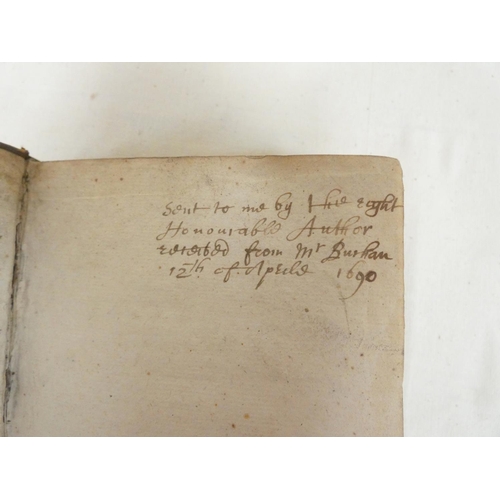 Sent to me by the right
Honourable Author
receved from Mr
12th of Aprile 1690